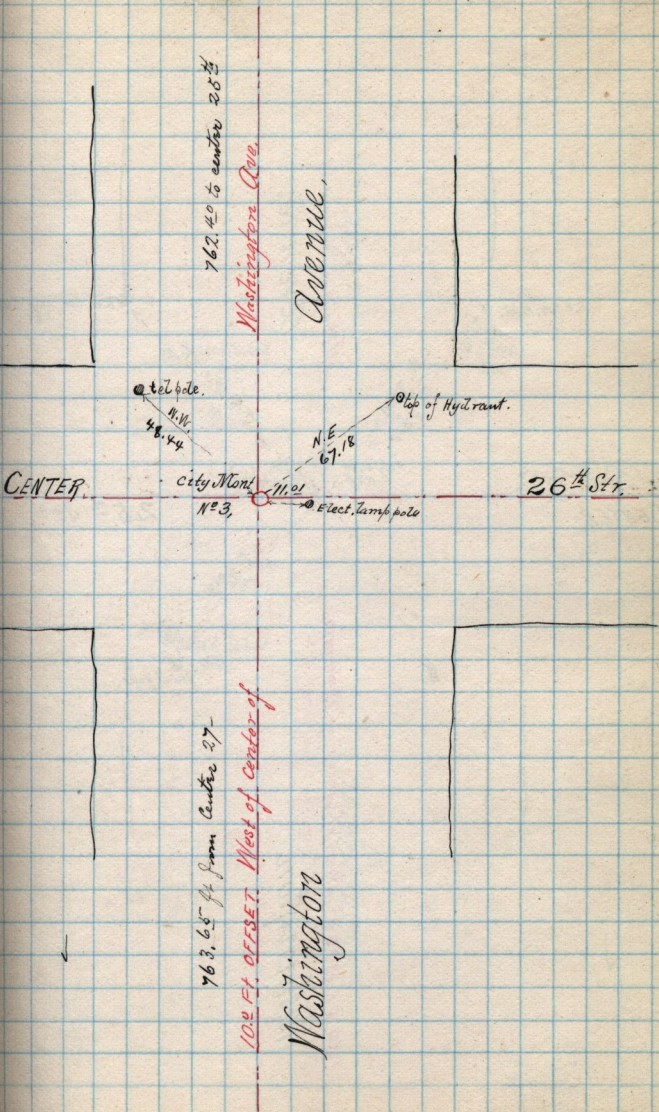 762.40 to center 25th
Washington Ave.
Avenue,
tel pole.
N.W.
48.44
top of Hydrant.
N.E
67.18
CENTER
City Mont
11.01
26th Str.
No 3,
Elect. lamp pole
763.65 ft from Center 27-
10.0 Ft OFFSET West of Center of
Washington